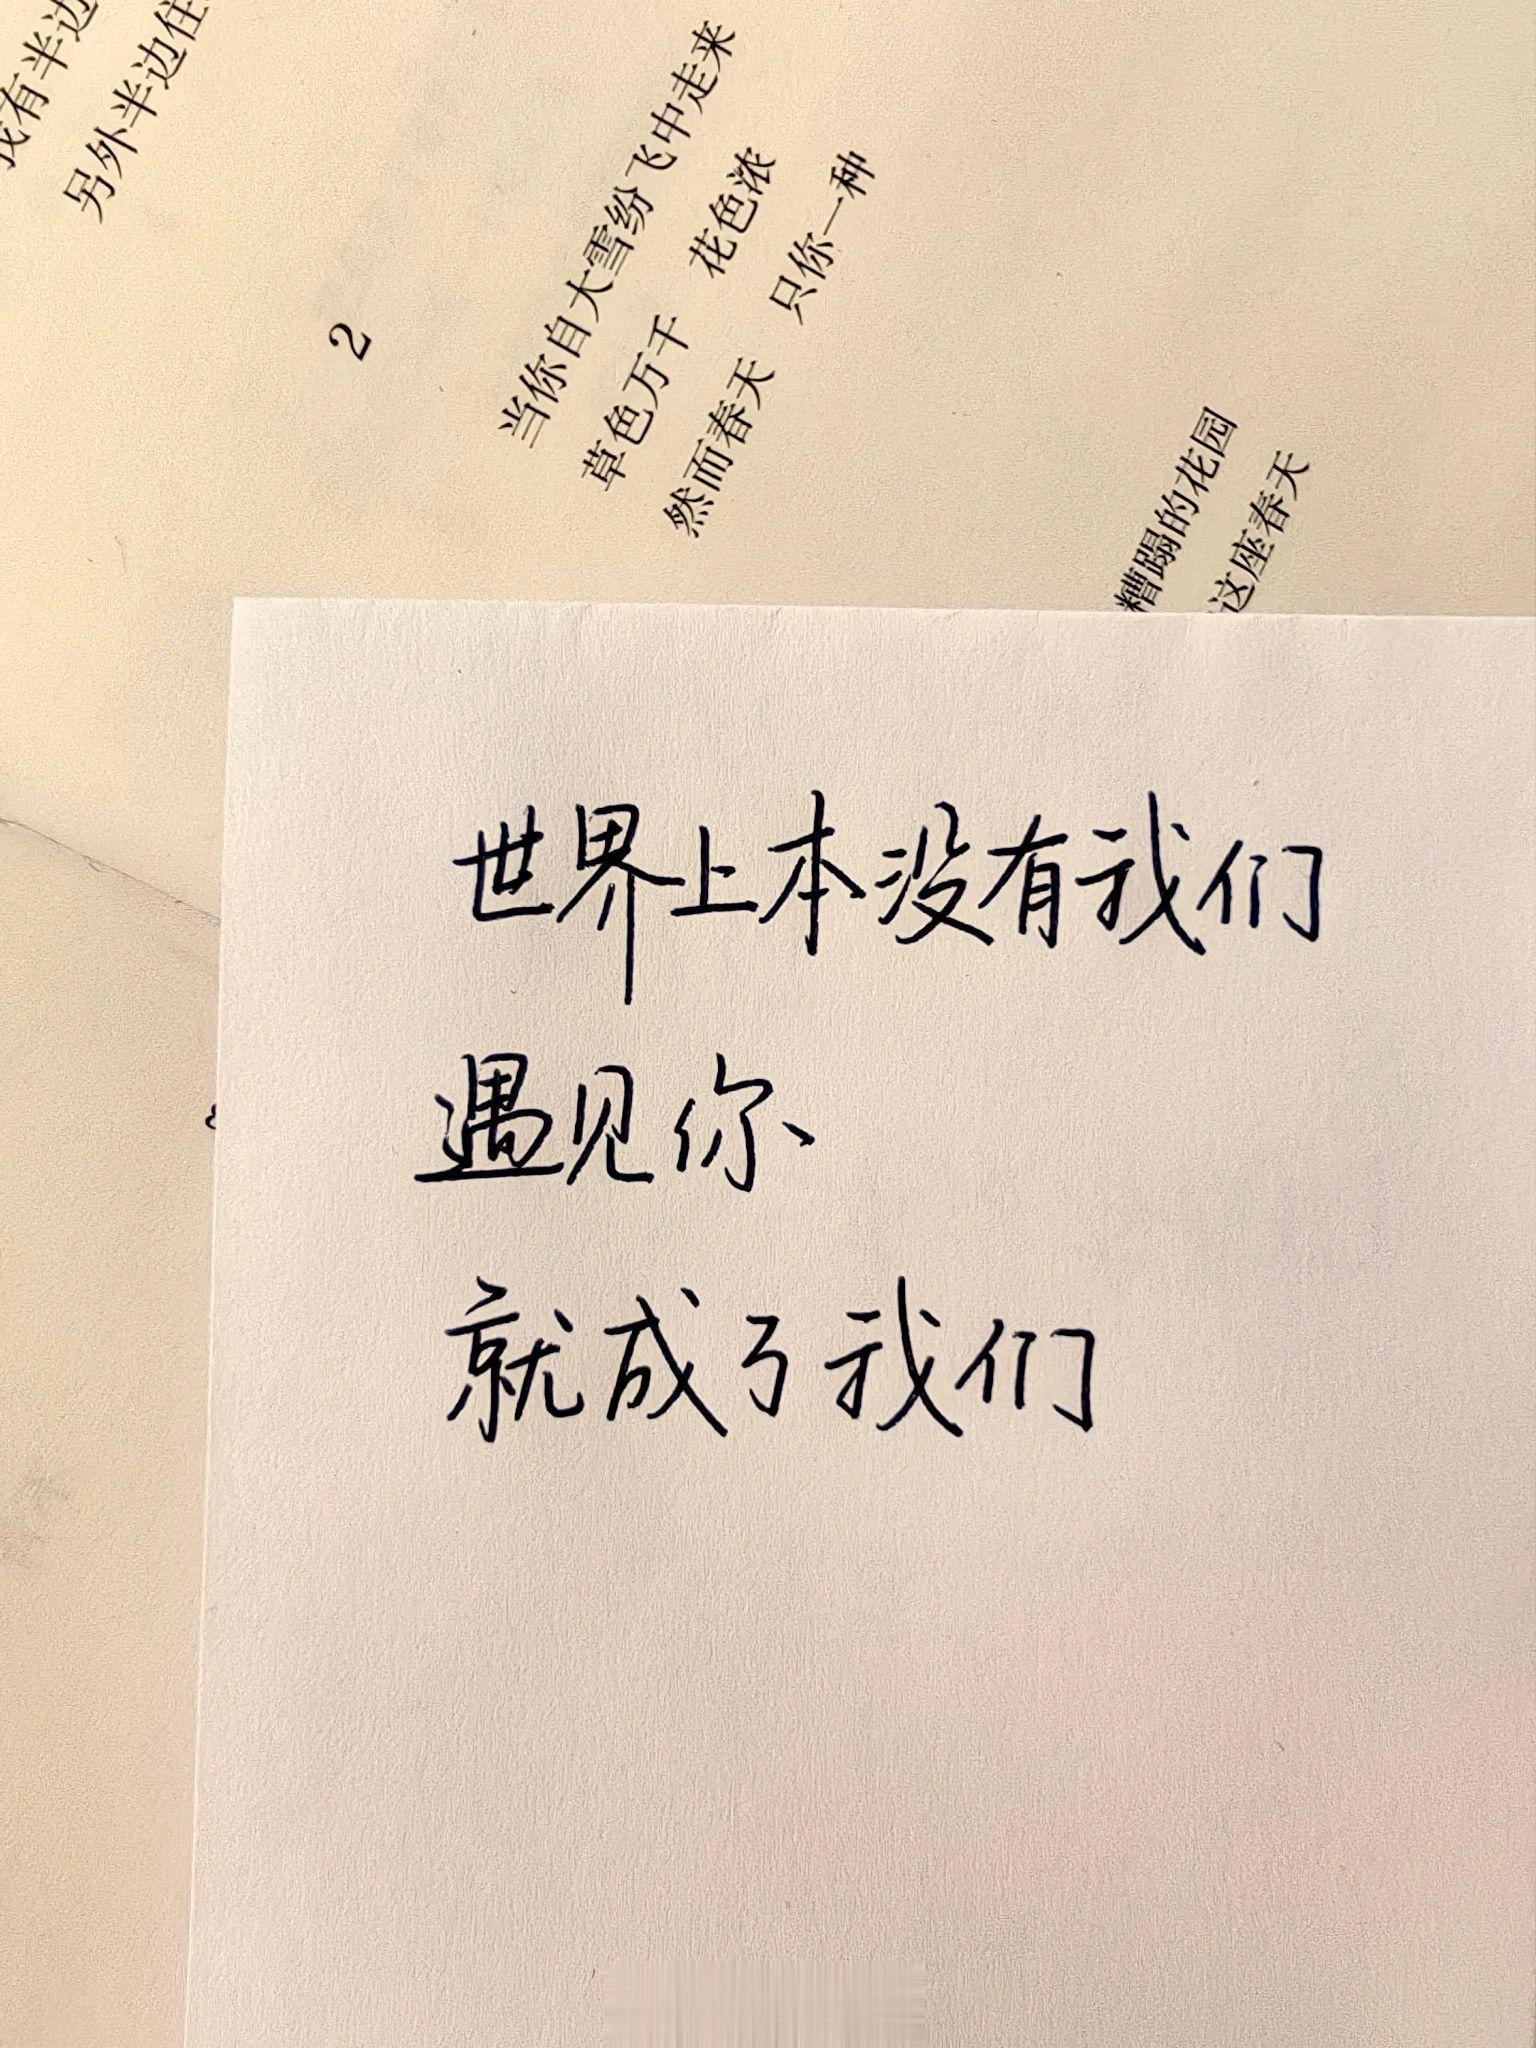 我有半边
另外半边住
2
当你自大雪纷飞中走来
草色万千 花色浓
然而春天 只你一种
糟蹋的花园
这座春天
世界上本没有我们
遇见你
就成了我们